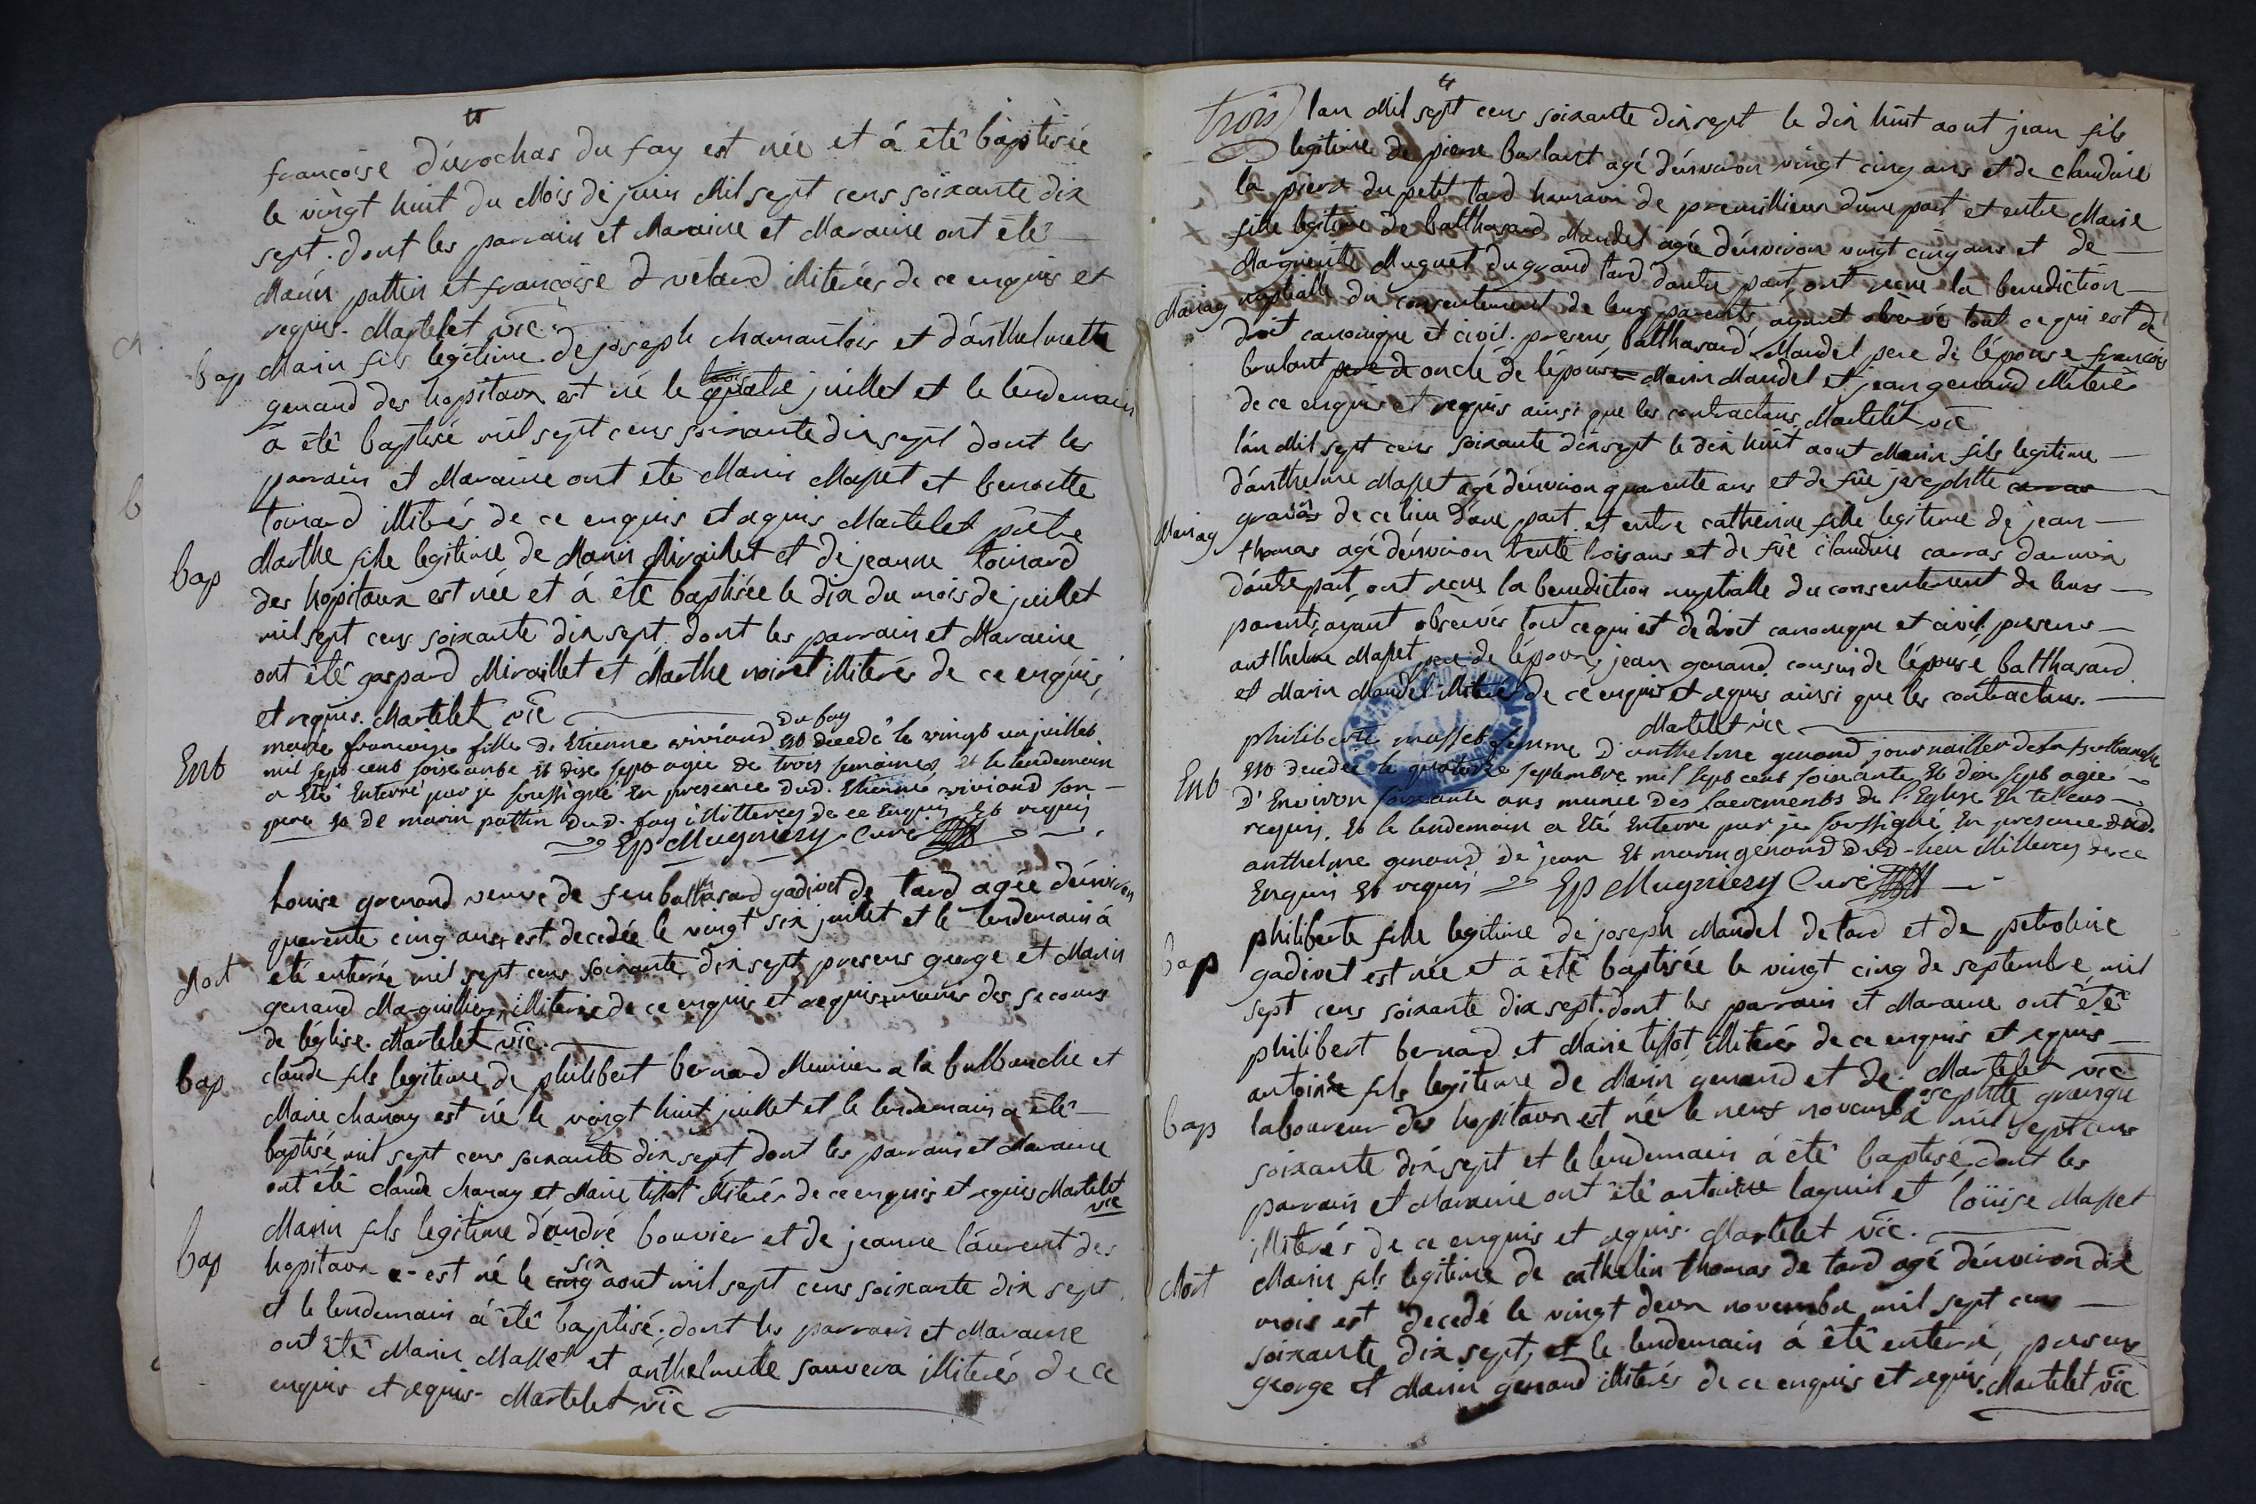 françoise dérochas du fay est née et á été baptisée
le vingt huit du Mois de juin Mil sept cens soixante dix
sept. dont les parrain et Maraine et Maraine ont été
Marin pattin et françoise d velard illiterés de ce enquis et
requis. Martelet vic
bap
Marin fils legitime de joseph chamantois et d'anthelmette
genand des hopitaux est né le trois juillet et le lendemain
a été baptisé mil sept cens soixante dix sept dont les
b
parrain et Maraine ont eté Marin Masset et benoitte
toinard illiterés de ce enquis et requis Martelet pretre
bap
Marthe fille legitime de Marin Miraillet et de jeanne toinard
des hopitaux est née et á été baptisée le dix du mois de juillet
mil sept cens soixante dix sept. dont les parrain et Maraine
ont été gaspard Miraillet et Marthe noiret illiterés de ce enquis,
et requis. Martelet vic
Ent
marie françoise fille d'Etienne viviand du fay est decedé le vingt un juillet
mil sept cent soixante et dix sept agée de trois semaines et le lendemain
a Eté Enterré par je soussigné En presence dud. Etienne viviand son
pere et de marin pattin dud. fay illitterez de ce Enquis et requis
Mugniery Curé
Louise genand veuve de feu balthasard gadivet de tard agée dénviron
quarente cinq ans, est decedée le vingt six juillet et le lendemain á
Mort
eté enterrée mil sept cens soixante dix sept presens george et Marin
genand Marguilliers illiterés de ce enquis et requis, munie des secours
de léglise. Martelet vic.
bap
claude fils legitime de philibert bernard Meunier a la bulbanche et
Marie chanay est né le vingt huit juillet et le lendemain a été
baptisé mil sept cens soixante dix sept dont les parrain et Maraine
ont été claude chanay et Marie tissot illiterés de ce enquis et requis Martelet
vic
bap
Marin fils legitime d'andré bouvier et de jeanne laurent des
hopitaux est né le cinq six aout mil sept cens soixante dix sept
et le lendemain á été baptisé; dont les parrain et Maraine
ont été Marin Masset et anthelmette sauvera illiterés de ce
enquis et requis Martelet vic
trois
lan Mil sept cens soixante dix sept le dix huit aout jean fils
legitime de pierre burlant agé dénviron vingt cinq ans et de claudine
la pierre du petit tard hameau de premillieux dune part et entre Marie
fille legitime de balthasard Mandel agée dénviron vingt cinq ans et de
Marguerite Muguet du grand tard dautre part, ont recue la benediction
Mariag
nuptialle du consentement de leurs parents ayant observés tout ce qui est de
droit canonique et civil. presens balthasard Mandel pere de lépouse françois
brulant pere oncle de lépoux Marin Mandel et jean genand illiterés
de ce enquis et requis ainsi que les contractans. Martelet vic
lán Mil sept cens soixante dix sept le dix huit aout Marin fils legitime
dánthelme Masset agé dénviron quarente ans et de fûe josephtte carras
Mariag
de ce lieu dune part et entre catherine fille legitime de jean
thomas agé dénviron trente trois ans et de fûe claudine carras darmix
dáutre part, ont recue la benediction nuptialle du consentement de leurs
parents, ayant observés tout ce qui est de droit canonique et civil. presens
anthelme Masset pere de lépoux, jean genand cousin de lépouse balthasard
et Marin Mandel illiterés de ce enquis et requis ainsi que les contractans.
Martelet vic
philiberte masset femme d'anthelme genand journaillier de la burbanche
Ent
est decedée le quatorze septembre mil sept cent soixante et dix sept agée
d'Environ soixante ans munie des sacrements de l'Eglise En tel cas
requis, et le lendemain a Eté Enterré par je soussigné En presence dud.
anthelme genand de jean et marin genand dud. lieu illiterez de ce
Enquis et requis Mugniery Curé
bap
philiberte fille legitime de joseph Mandel de tard et de petroline
gadivet est née et á été baptisée le vingt cinq de septembre mil
sept cens soixante dix sept. dont les parrain et Maraine ont été
philibert bernard et Marie tissot illiterés de ce enquis et requis
Martelet vic
antoine fils legitime de Marin genand et de josephtte grange
bap
laboureur des hopitaux est né le neuf novembre mil sept cens
soixante dix sept et le lendemain á été baptisé, dont les
parrain et Maraine ont été antoine laguin et loüise Masset
illiterés de ce enquis et requis. Martelet vic.
Mort
Marin fils legitime de cathelin thomas de tard agé dénviron dix
mois est decedé le vingt deux novembre mil sept cens
soixante dix sept, et le lendemain á été enterré, presens
george et Marin genand illiterés de ce enquis et requis. Martelet vic